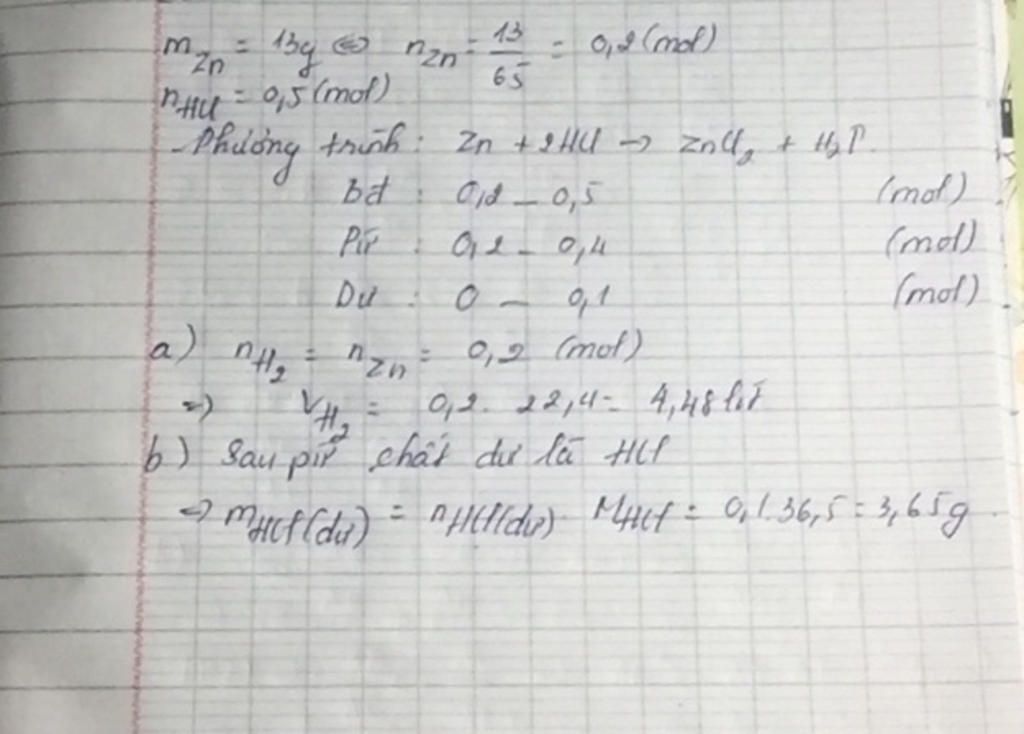 m_Zn = 13g ⇔ n_Zn = 13/65 = 0,2 (mol)
n_HCl = 0,5 (mol)
Phương trình: Zn + 2HCl → ZnCl₂ + H₂↑.
Bđ : 0,2 _ 0,5 (mol)
Pứ : 0,2 - 0,4 (mol)
Dư : 0 _ 0,1 (mol)
a) n_H₂ = n_Zn = 0,2 (mol)
=> V_H₂ = 0,2. 22,4 = 4,48 lít
b) Sau pứ chất dư là HCl
=> m_HCl(dư) = n_HCl(dư). M_HCl = 0,1.36,5 = 3,65g.